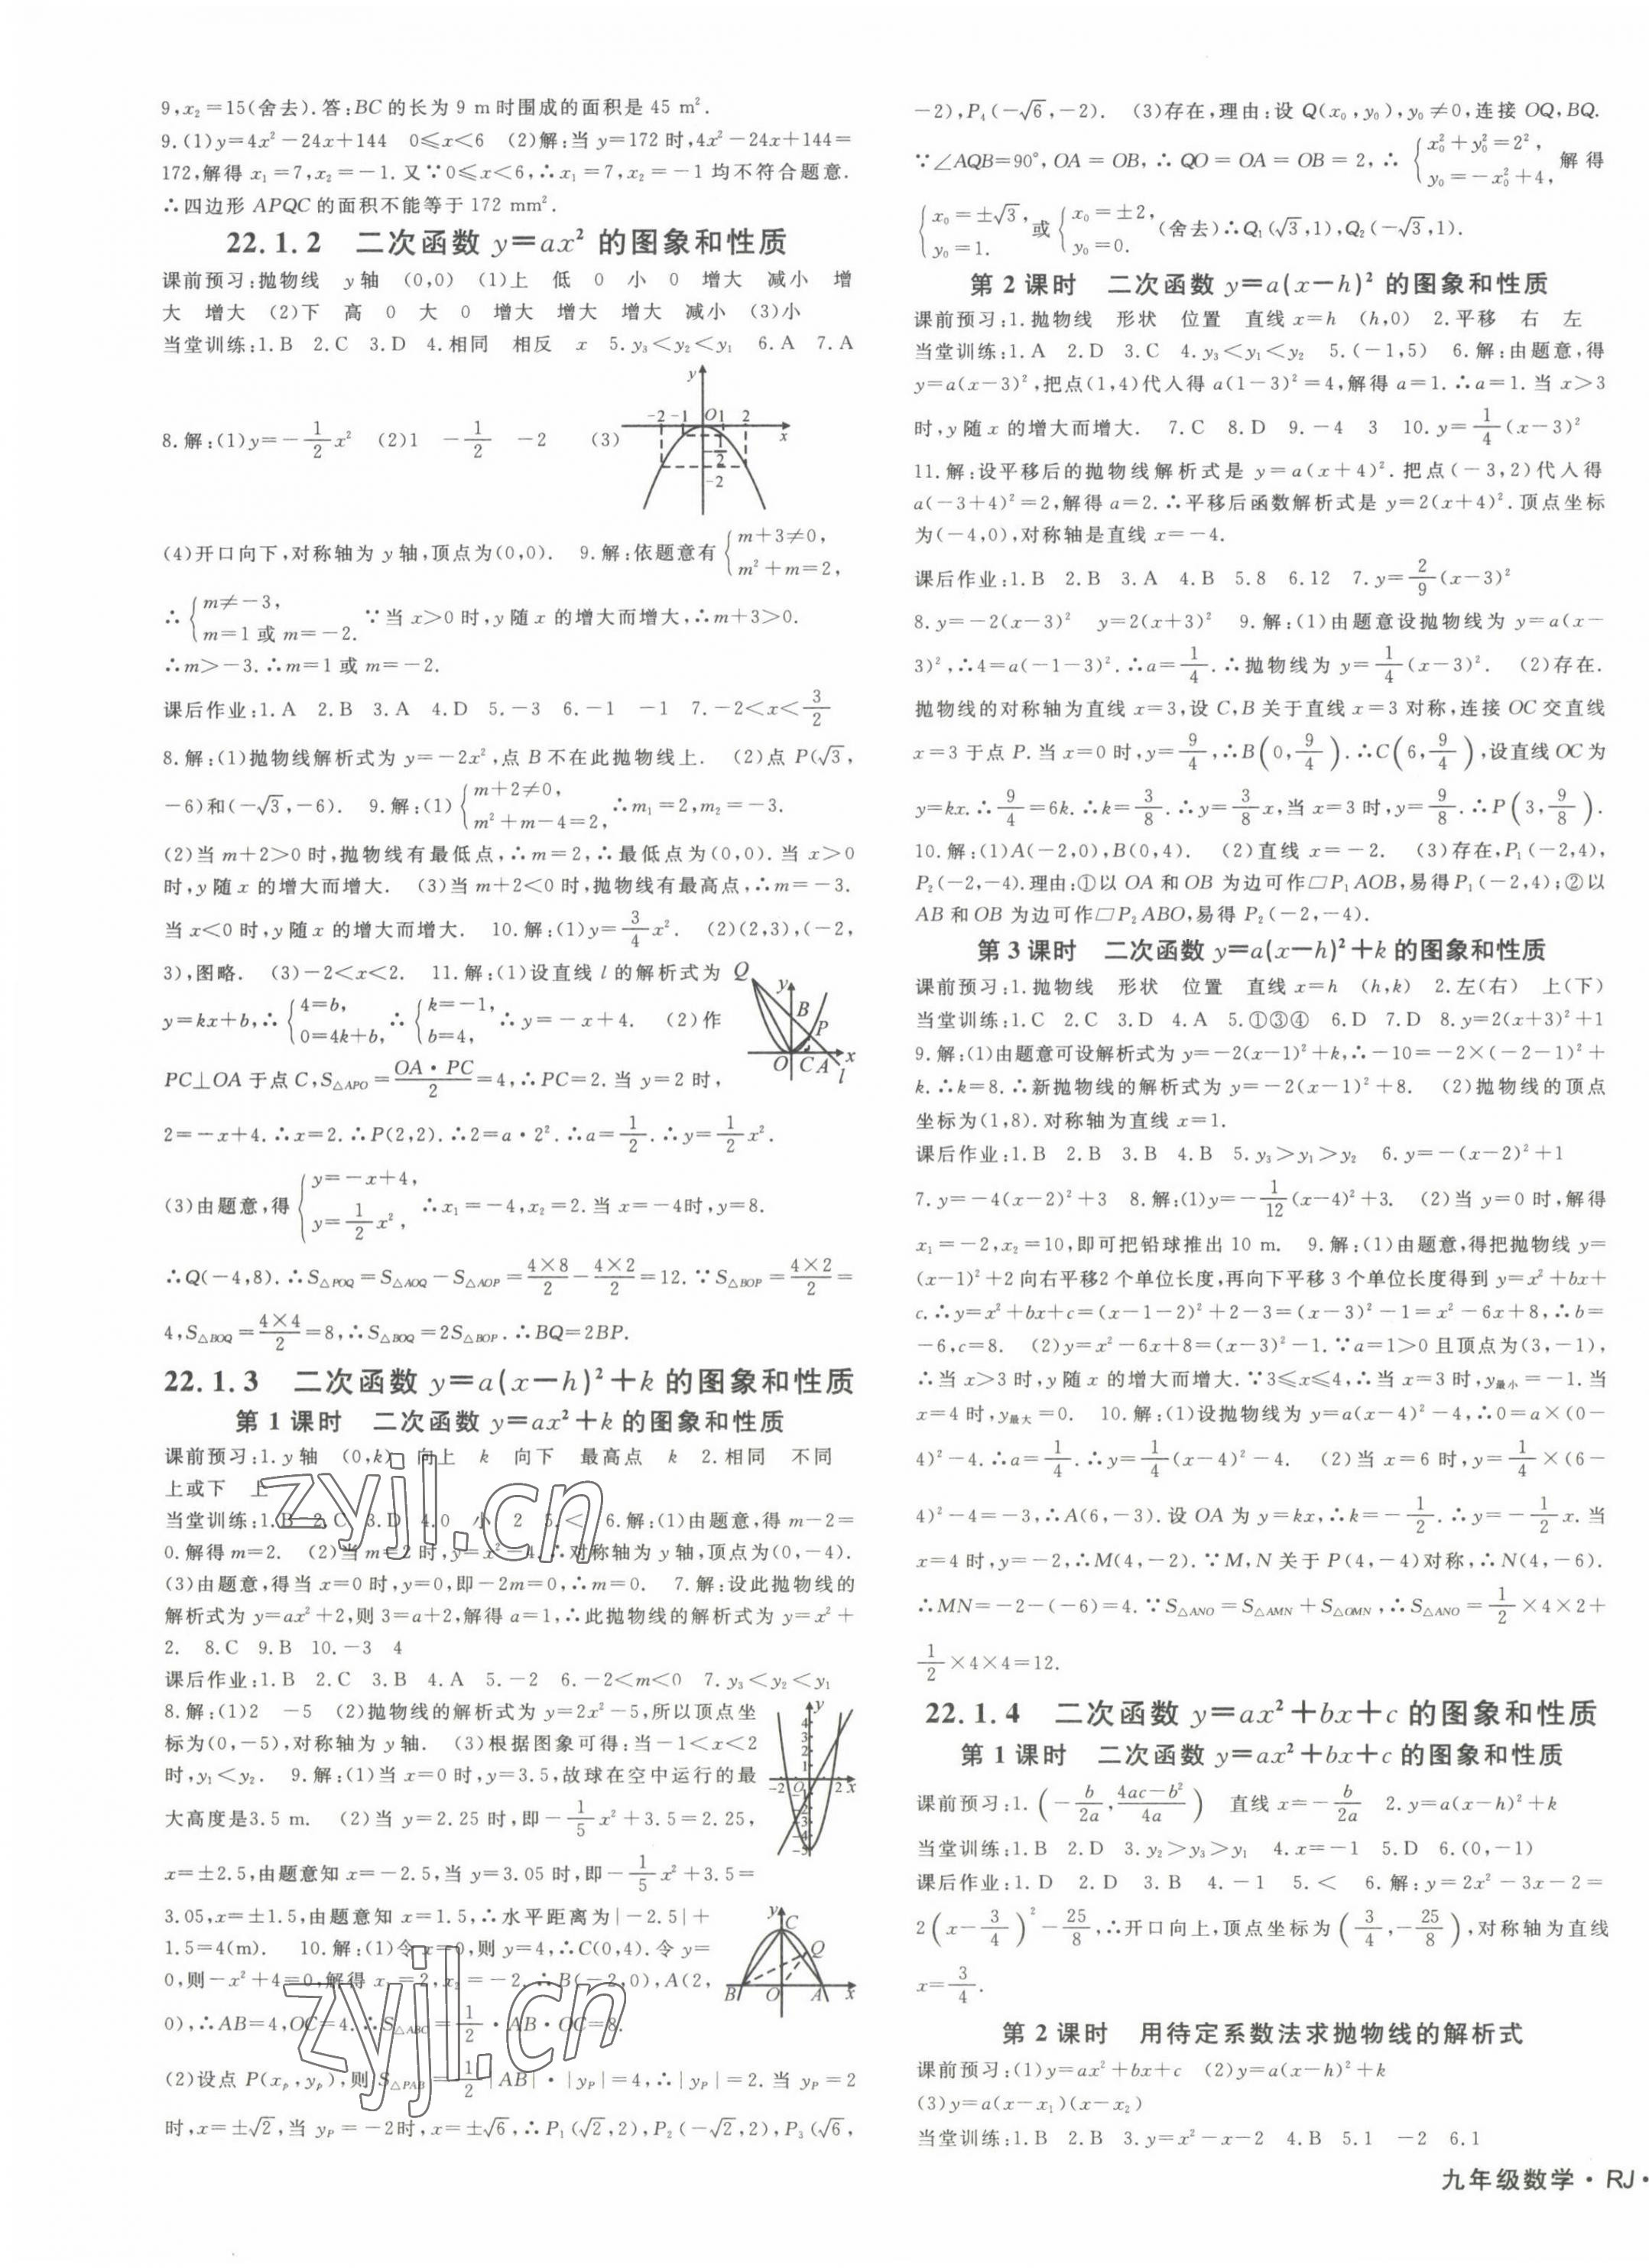 9,x₂=15(舍去).答:BC的长为9 m时围成的面积是45 m².
9.(1)y=4x²-24x+144　0≤x<6　(2)解:当y=172时,4x²-24x+144=
172,解得x₁=7,x₂=-1.又∵0≤x<6,∴x₁=7,x₂=-1均不符合题意.
∴四边形APQC的面积不能等于172 mm².
22.1.2　二次函数y=ax²的图象和性质
课前预习:抛物线　y轴　(0,0)　(1)上　低　0　小　0　增大　减小　增
大　增大　(2)下　高　0　大　0　增大　增大　增大　减小　(3)小
当堂训练:1.B　2.C　3.D　4.相同　相反　x　5.y₃<y₂<y₁　6.A　7.A
8.解:(1)y=-1/2x²　(2)1　-1/2　-2　(3)
y
-2 -1 O 1 2
x
-1/2
-2
(4)开口向下,对称轴为y轴,顶点为(0,0).　9.解:依题意有{m+3≠0, m²+m=2,
∴{m≠-3, m=1或m=-2. ∵当x>0时,y随x的增大而增大,∴m+3>0.
∴m>-3.∴m=1或m=-2.
课后作业:1.A　2.B　3.A　4.D　5.-3　6.-1　-1　7.-2<x<3/2
8.解:(1)抛物线解析式为y=-2x²,点B不在此抛物线上.　(2)点P(√3,
-6)和(-√3,-6).　9.解:(1){m+2≠0, m²+m-4=2, ∴m₁=2,m₂=-3.
(2)当m+2>0时,抛物线有最低点,∴m=2,∴最低点为(0,0).当x>0
时,y随x的增大而增大.　(3)当m+2<0时,抛物线有最高点,∴m=-3.
当x<0时,y随x的增大而增大.　10.解:(1)y=3/4x².　(2)(2,3),(-2,
3),图略.　(3)-2<x<2.　11.解:(1)设直线l的解析式为
y=kx+b,∴{4=b, 0=4k+b, ∴{k=-1, b=4, ∴y=-x+4.　(2)作
Q y B P O C A x l
PC⊥OA于点C,S△APO=OA·PC/2=4,∴PC=2.当y=2时,
2=-x+4.∴x=2.∴P(2,2).∴2=a·2².∴a=1/2.∴y=1/2x².
(3)由题意,得{y=-x+4, y=1/2x², ∴x₁=-4,x₂=2.当x=-4时,y=8.
∴Q(-4,8).∴S△POQ=S△AOQ-S△AOP=4×8/2-4×2/2=12.∵S△BOP=4×2/2=
4,S△BOQ=4×4/2=8,∴S△BOQ=2S△BOP.∴BQ=2BP.
22.1.3　二次函数y=a(x-h)²+k的图象和性质
第1课时　二次函数y=ax²+k的图象和性质
课前预习:1.y轴　(0,k)　向上　k　向下　最高点　k　2.相同　不同
上或下　上
当堂训练:1.B　2.C　3.D　4.0　小　2　5.<　6.解:(1)由题意,得m-2=
0.解得m=2.　(2)当m=2时,y=x²-4,∴对称轴为y轴,顶点为(0,-4).
(3)由题意,得当x=0时,y=0,即-2m=0,∴m=0.　7.解:设此抛物线的
解析式为y=ax²+2,则3=a+2,解得a=1,∴此抛物线的解析式为y=x²+
2.　8.C　9.B　10.-3　4
课后作业:1.B　2.C　3.B　4.A　5.-2　6.-2<m<0　7.y₃<y₂<y₁
8.解:(1)2　-5　(2)抛物线的解析式为y=2x²-5,所以顶点坐
标为(0,-5),对称轴为y轴.　(3)根据图象可得:当-1<x<2
时,y₁<y₂.　9.解:(1)当x=0时,y=3.5,故球在空中运行的最
大高度是3.5 m.　(2)当y=2.25时,即-1/5x²+3.5=2.25,
x=±2.5,由题意知x=-2.5,当y=3.05时,即-1/5x²+3.5=
y 4 3 2 1 -2 O 2 x -1 -2 -3 -4 -5
3.05,x=±1.5,由题意知x=1.5,∴水平距离为|-2.5|+
1.5=4(m).　10.解:(1)令x=0,则y=4,∴C(0,4).令y=
0,则-x²+4=0,解得x₁=2,x₂=-2,∴B(-2,0),A(2,
0),∴AB=4,OC=4.∴S△ABC=1/2·AB·OC=8.
y C Q B O A x
(2)设点P(xₚ,yₚ),则S△PAB=1/2|AB|·|yP|=4,∴|yP|=2.当yP=2
时,x=±√2,当yP=-2时,x=±√6,∴P₁(√2,2),P₂(-√2,2),P₃(√6,
-2),P₄(-√6,-2).　(3)存在,理由:设Q(x₀,y₀),y₀≠0,连接OQ,BQ.
∵∠AQB=90°,OA=OB,∴QO=OA=OB=2,∴{x₀²+y₀²=2², y₀=-x₀²+4, 解得
{x₀=±√3, y₀=1. 或{x₀=±2, y₀=0. (舍去)∴Q₁(√3,1),Q₂(-√3,1).
第2课时　二次函数y=a(x-h)²的图象和性质
课前预习:1.抛物线　形状　位置　直线x=h　(h,0)　2.平移　右　左
当堂训练:1.A　2.D　3.C　4.y₃<y₁<y₂　5.(-1,5)　6.解:由题意,得
y=a(x-3)²,把点(1,4)代入得a(1-3)²=4,解得a=1.∴a=1.当x>3
时,y随x的增大而增大.　7.C　8.D　9.-4　3　10.y=1/4(x-3)²
11.解:设平移后的抛物线解析式是y=a(x+4)².把点(-3,2)代入得
a(-3+4)²=2,解得a=2.∴平移后函数解析式是y=2(x+4)².顶点坐标
为(-4,0),对称轴是直线x=-4.
课后作业:1.B　2.B　3.A　4.B　5.8　6.12　7.y=2/9(x-3)²
8.y=-2(x-3)²　y=2(x+3)²　9.解:(1)由题意设抛物线为y=a(x-
3)²,∴4=a(-1-3)².∴a=1/4.∴抛物线为y=1/4(x-3)².　(2)存在.
抛物线的对称轴为直线x=3,设C,B关于直线x=3对称,连接OC交直线
x=3于点P.当x=0时,y=9/4,∴B(0,9/4).∴C(6,9/4),设直线OC为
y=kx.∴9/4=6k.∴k=3/8.∴y=3/8x,当x=3时,y=9/8.∴P(3,9/8).
10.解:(1)A(-2,0),B(0,4).　(2)直线x=-2.　(3)存在,P₁(-2,4),
P₂(-2,-4).理由:①以OA和OB为边可作▱P₁AOB,易得P₁(-2,4);②以
AB和OB为边可作▱P₂ABO,易得P₂(-2,-4).
第3课时　二次函数y=a(x-h)²+k的图象和性质
课前预习:1.抛物线　形状　位置　直线x=h　(h,k)　2.左(右)　上(下)
当堂训练:1.C　2.C　3.D　4.A　5.①③④　6.D　7.D　8.y=2(x+3)²+1
9.解:(1)由题意可设解析式为y=-2(x-1)²+k,∴-10=-2×(-2-1)²+
k.∴k=8.∴新抛物线的解析式为y=-2(x-1)²+8.　(2)抛物线的顶点
坐标为(1,8).对称轴为直线x=1.
课后作业:1.B　2.B　3.B　4.B　5.y₃>y₁>y₂　6.y=-(x-2)²+1
7.y=-4(x-2)²+3　8.解:(1)y=-1/12(x-4)²+3.　(2)当y=0时,解得
x₁=-2,x₂=10,即可把铅球推出10 m.　9.解:(1)由题意,得把抛物线y=
(x-1)²+2向右平移2个单位长度,再向下平移3个单位长度得到y=x²+bx+
c.∴y=x²+bx+c=(x-1-2)²+2-3=(x-3)²-1=x²-6x+8,∴b=
-6,c=8.　(2)y=x²-6x+8=(x-3)²-1.∵a=1>0且顶点为(3,-1),
∴当x>3时,y随x的增大而增大.∵3≤x≤4,∴当x=3时,y最小=-1.当
x=4时,y最大=0.　10.解:(1)设抛物线为y=a(x-4)²-4,∴0=a×(0-
4)²-4.∴a=1/4.∴y=1/4(x-4)²-4.　(2)当x=6时,y=1/4×(6-
4)²-4=-3,∴A(6,-3).设OA为y=kx,∴k=-1/2.∴y=-1/2x.当
x=4时,y=-2,∴M(4,-2).∵M,N关于P(4,-4)对称,∴N(4,-6).
∴MN=-2-(-6)=4.∵S△ANO=S△AMN+S△OMN,∴S△ANO=1/2×4×2+
1/2×4×4=12.
22.1.4　二次函数y=ax²+bx+c的图象和性质
第1课时　二次函数y=ax²+bx+c的图象和性质
课前预习:1.(-b/2a,4ac-b²/4a)　直线x=-b/2a　2.y=a(x-h)²+k
当堂训练:1.B　2.D　3.y₂>y₃>y₁　4.x=-1　5.D　6.(0,-1)
课后作业:1.D　2.D　3.B　4.-1　5.<　6.解:y=2x²-3x-2=
2(x-3/4)²-25/8,∴开口向上,顶点坐标为(3/4,-25/8),对称轴为直线
x=3/4.
第2课时　用待定系数法求抛物线的解析式
课前预习:(1)y=ax²+bx+c　(2)y=a(x-h)²+k
(3)y=a(x-x₁)(x-x₂)
当堂训练:1.B　2.B　3.y=x²-x-2　4.B　5.1　-2　6.1
九年级数学·RJ·
zyjl.cn
zyjl.cn